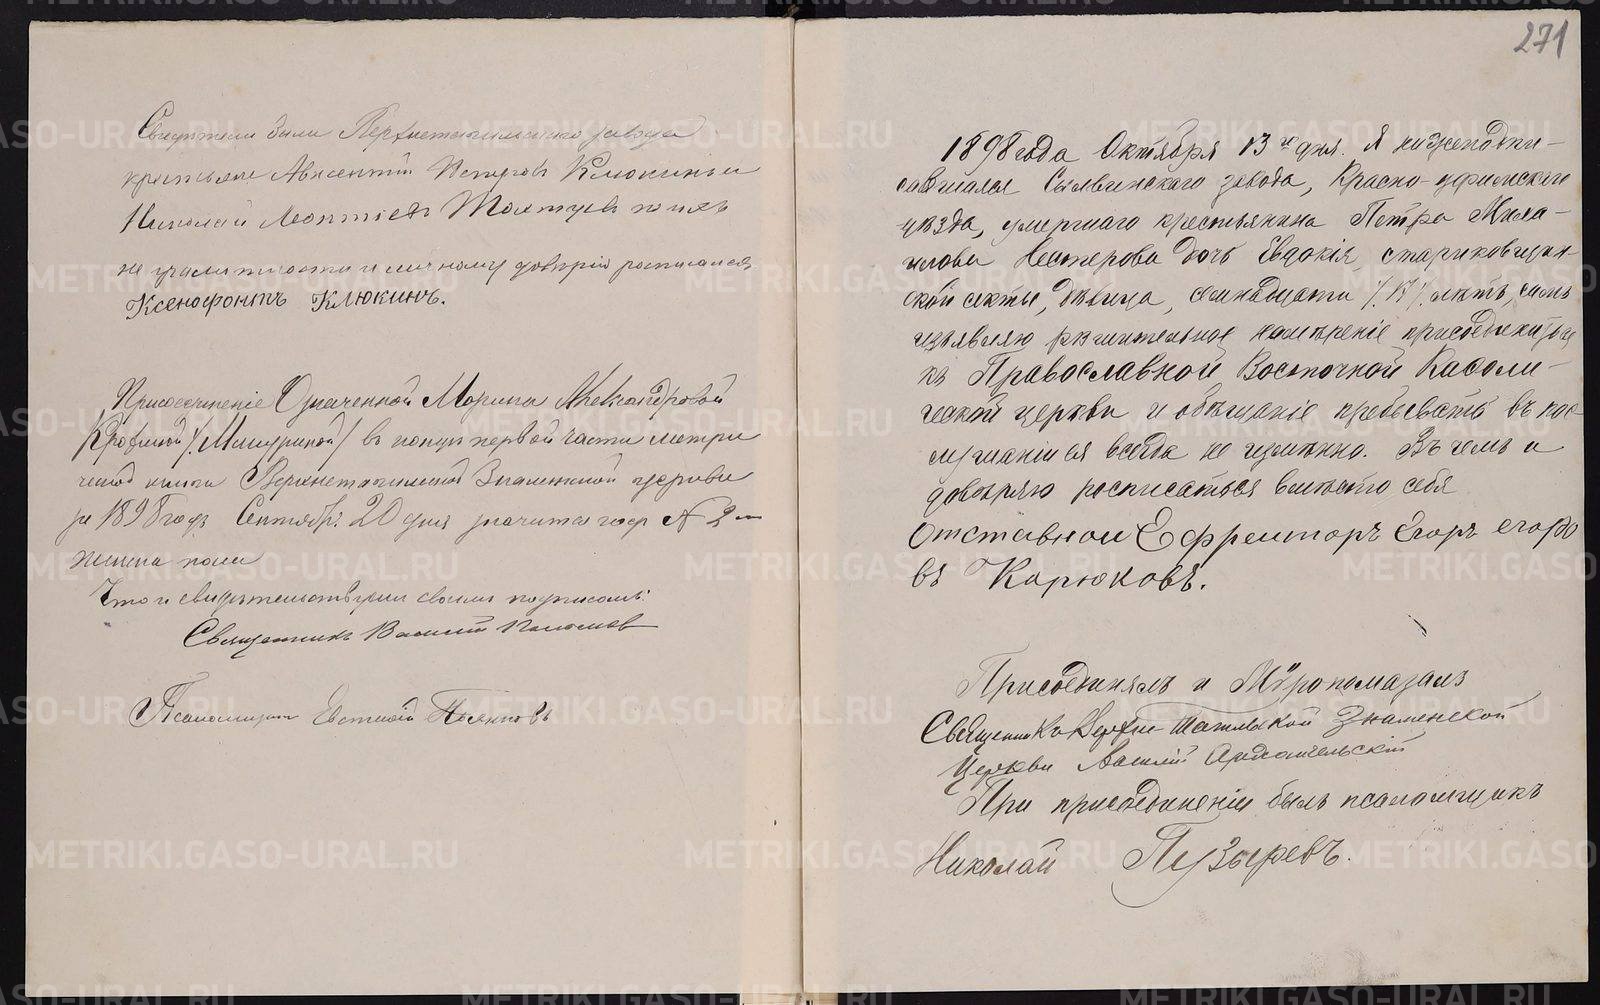 Свидетели были Верхнетагильского завода
крестьяне Авксентій Петровъ Клюкинъ и
Николай Леонтіевъ Толстцовъ по ихъ
не грамотности и личному доверію росписался
Ксенофонтъ Клюкинъ.
Присоединеніе Означенной Марины Александровой
въ концѣ первой части метри
ческой книги Верхнетагильской Знаменской церкви
за 1898 годъ Сентября 20 дня значится подъ № 2 м
женска пола
Что и свидетельствуемъ своимъ подписомъ:
Священникъ Василій
Псаломщикъ Евстафій
271
1898 года Октября 13го дня. Я нижеподпи-
савшаяся Сылвинскаго завода, Красно-уфимскаго
уѣзда, умершаго крестьянина Петра Миха-
илова Нестерова дочь Евдокія, стариковщин-
ской секты, дѣвица, семнадцати /.17/. лѣтъ, симъ
изъявляю рѣшительное намѣреніе присоединиться
къ Православной Восточной Каѳоли-
ческой церкви и обѣщаніе пребывать въ пос-
лушаніи ея всегда не измѣнно. Въ чемъ и
довѣряю росписаться вмѣсто себя
Отставной Ефрейторъ Егоръ Егоро
въ Карюковъ.
Присоединялъ и Мѵропомазалъ
Священникъ Верхне-Тагильской Знаменской
Церкви Василій Архангельскій
При присоединеніи былъ псаломщикъ
Николай Пузыревъ.
METRIKI.GASO-URAL.RU